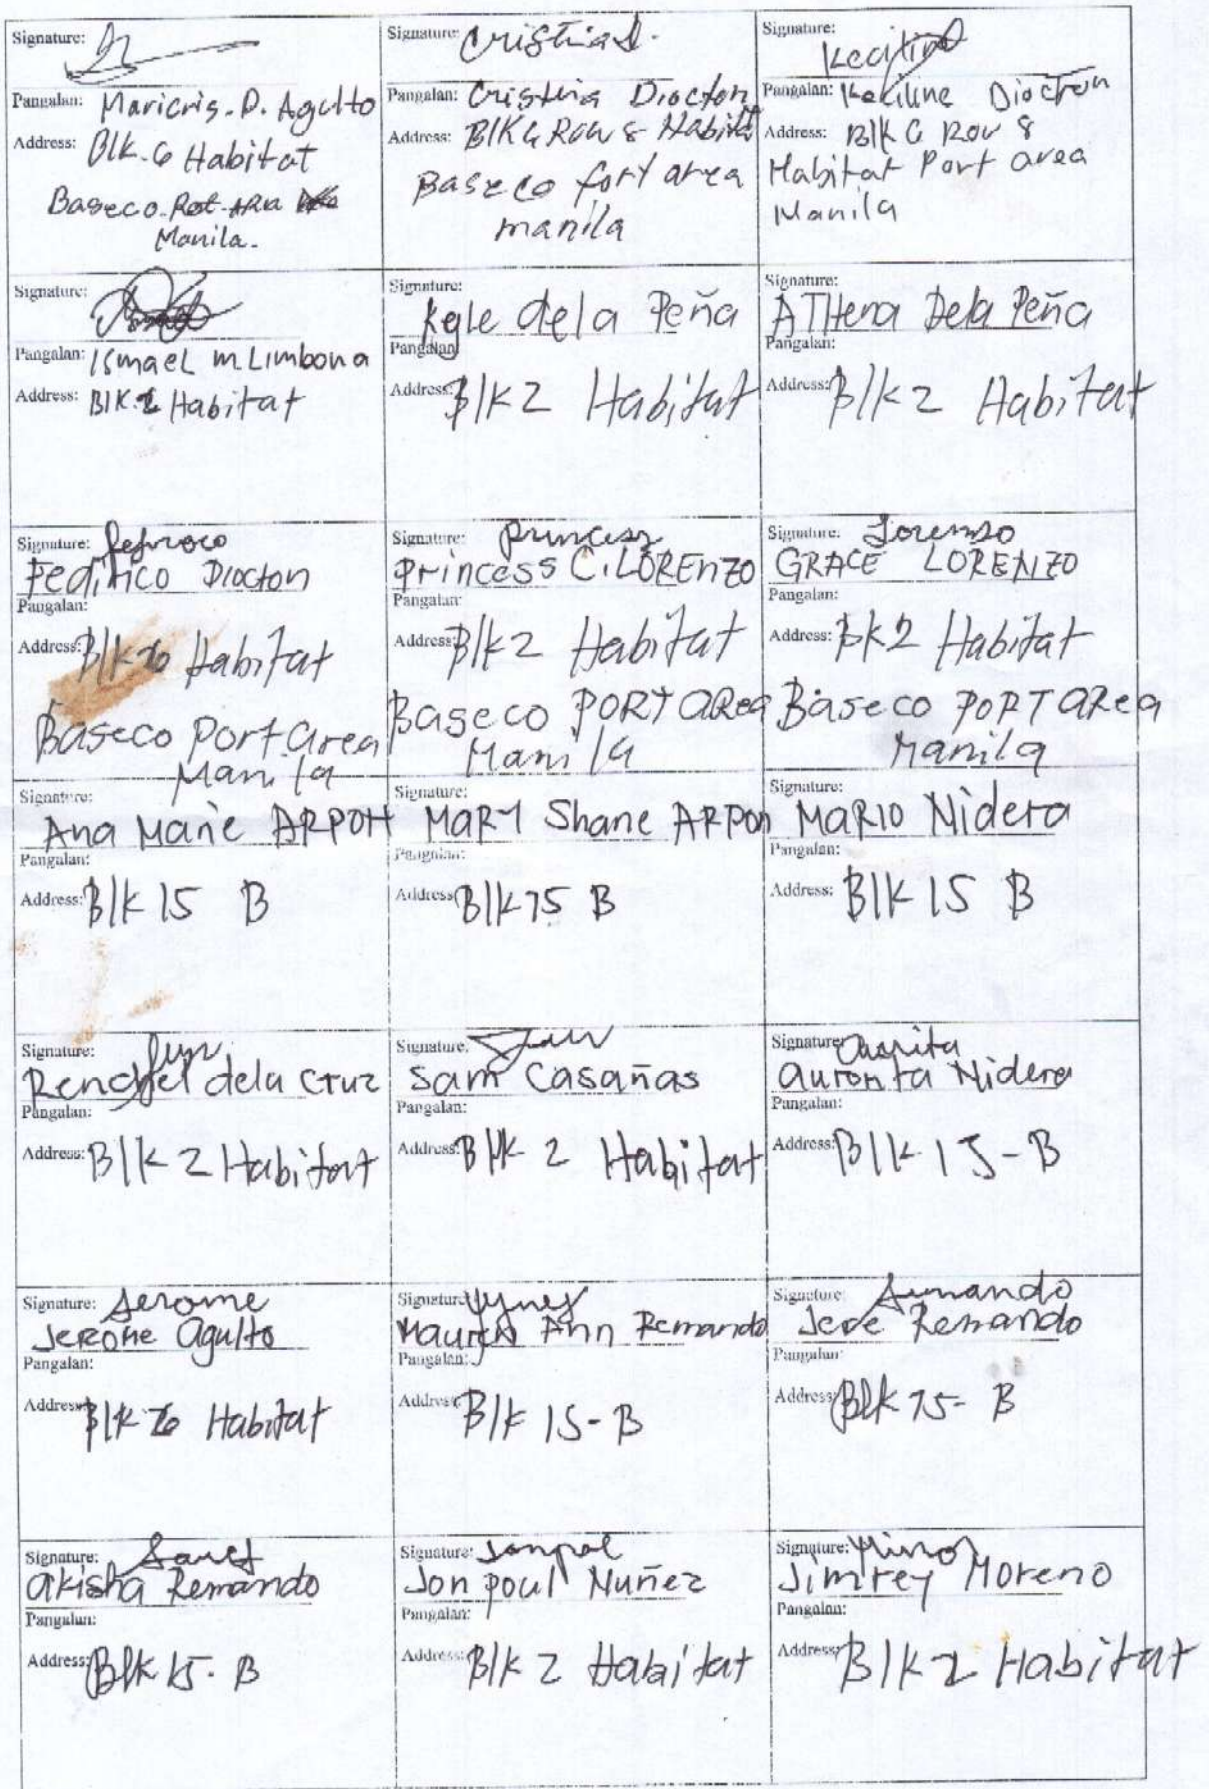 Signature:
Pangalan: Maricris. D. Agulto
Address: Blk. 6 Habitat
Baseco. Port Area
Manila.
Signature: Cristina D.
Pangalan: Cristina Diocton
Address: Blk 6 Row 8 Habitat
Baseco fort area
manila
Signature: Keciline
Pangalan: Keciline Diocton
Address: Blk 6 Row 8
Habitat Port area
Manila
Signature:
Pangalan: Ismael M. Limbona
Address: Blk. 2 Habitat
Signature:
Kyle dela Peña
Pangalan:
Address: Blk 2 Habitat
Signature:
AThena Dela Peña
Pangalan:
Address: Blk 2 Habitat
Signature:
Fedirico Diocton
Pangalan:
Address: Blk Habitat
Baseco Port area
Manila
Signature: Princess
Princess C. LORENZO
Pangalan:
Address: Blk 2 Habitat
Baseco PORT aRea
Manila
Signature: Lorenzo
GRACE LORENZO
Pangalan:
Address: Bk 2 Habitat
Baseco PORT aRea
Manila
Signature:
Ana Marie ARPON
Pangalan:
Address: Blk 15 B
Signature:
MARY Shane ARPON
Pangalan:
Address: Blk 15 B
Signature:
MARIO Nidera
Pangalan:
Address: Blk 15 B
Signature:
Renchel dela Cruz
Pangalan:
Address: Blk 2 Habitat
Signature:
Sam Casañas
Pangalan:
Address: Blk 2 Habitat
Signature:
Nidera
Pangalan:
Address: Blk 15-B
Signature: Jerome
Jerome Agulto
Pangalan:
Address: Blk Habitat
Signature:
Ann Remando
Pangalan:
Address: Blk 15-B
Signature:
Remando
Pangalan:
Address: Blk 15- B
Signature:
akisha Remando
Pangalan:
Address: Blk 15- B
Signature: Jonpol
Jon poul Nuñez
Pangalan:
Address: Blk 2 Habitat
Signature:
Jimrey Moreno
Pangalan:
Address: Blk 2 Habitat